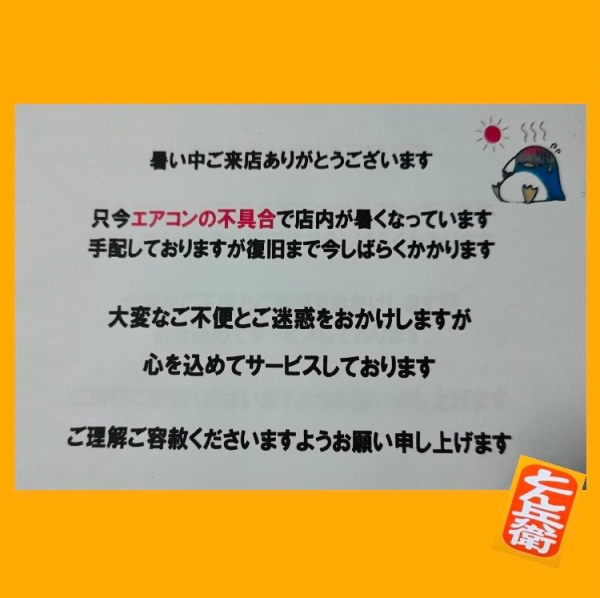 暑い中ご来店ありがとうございます
只今エアコンの不具合で店内が暑くなっています
手配しておりますが復旧まで今しばらくかかります
大変なご不便とご迷惑をおかけしますが
心を込めてサービスしております
ご理解ご容赦くださいますようお願い申し上げます
とん兵衛